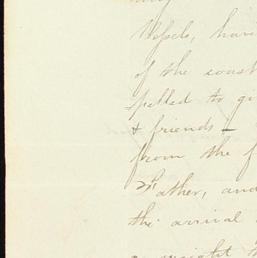 Vessels, havi
of the coast
pelled to gi
& friends —
from the f
Father, and
the arrival